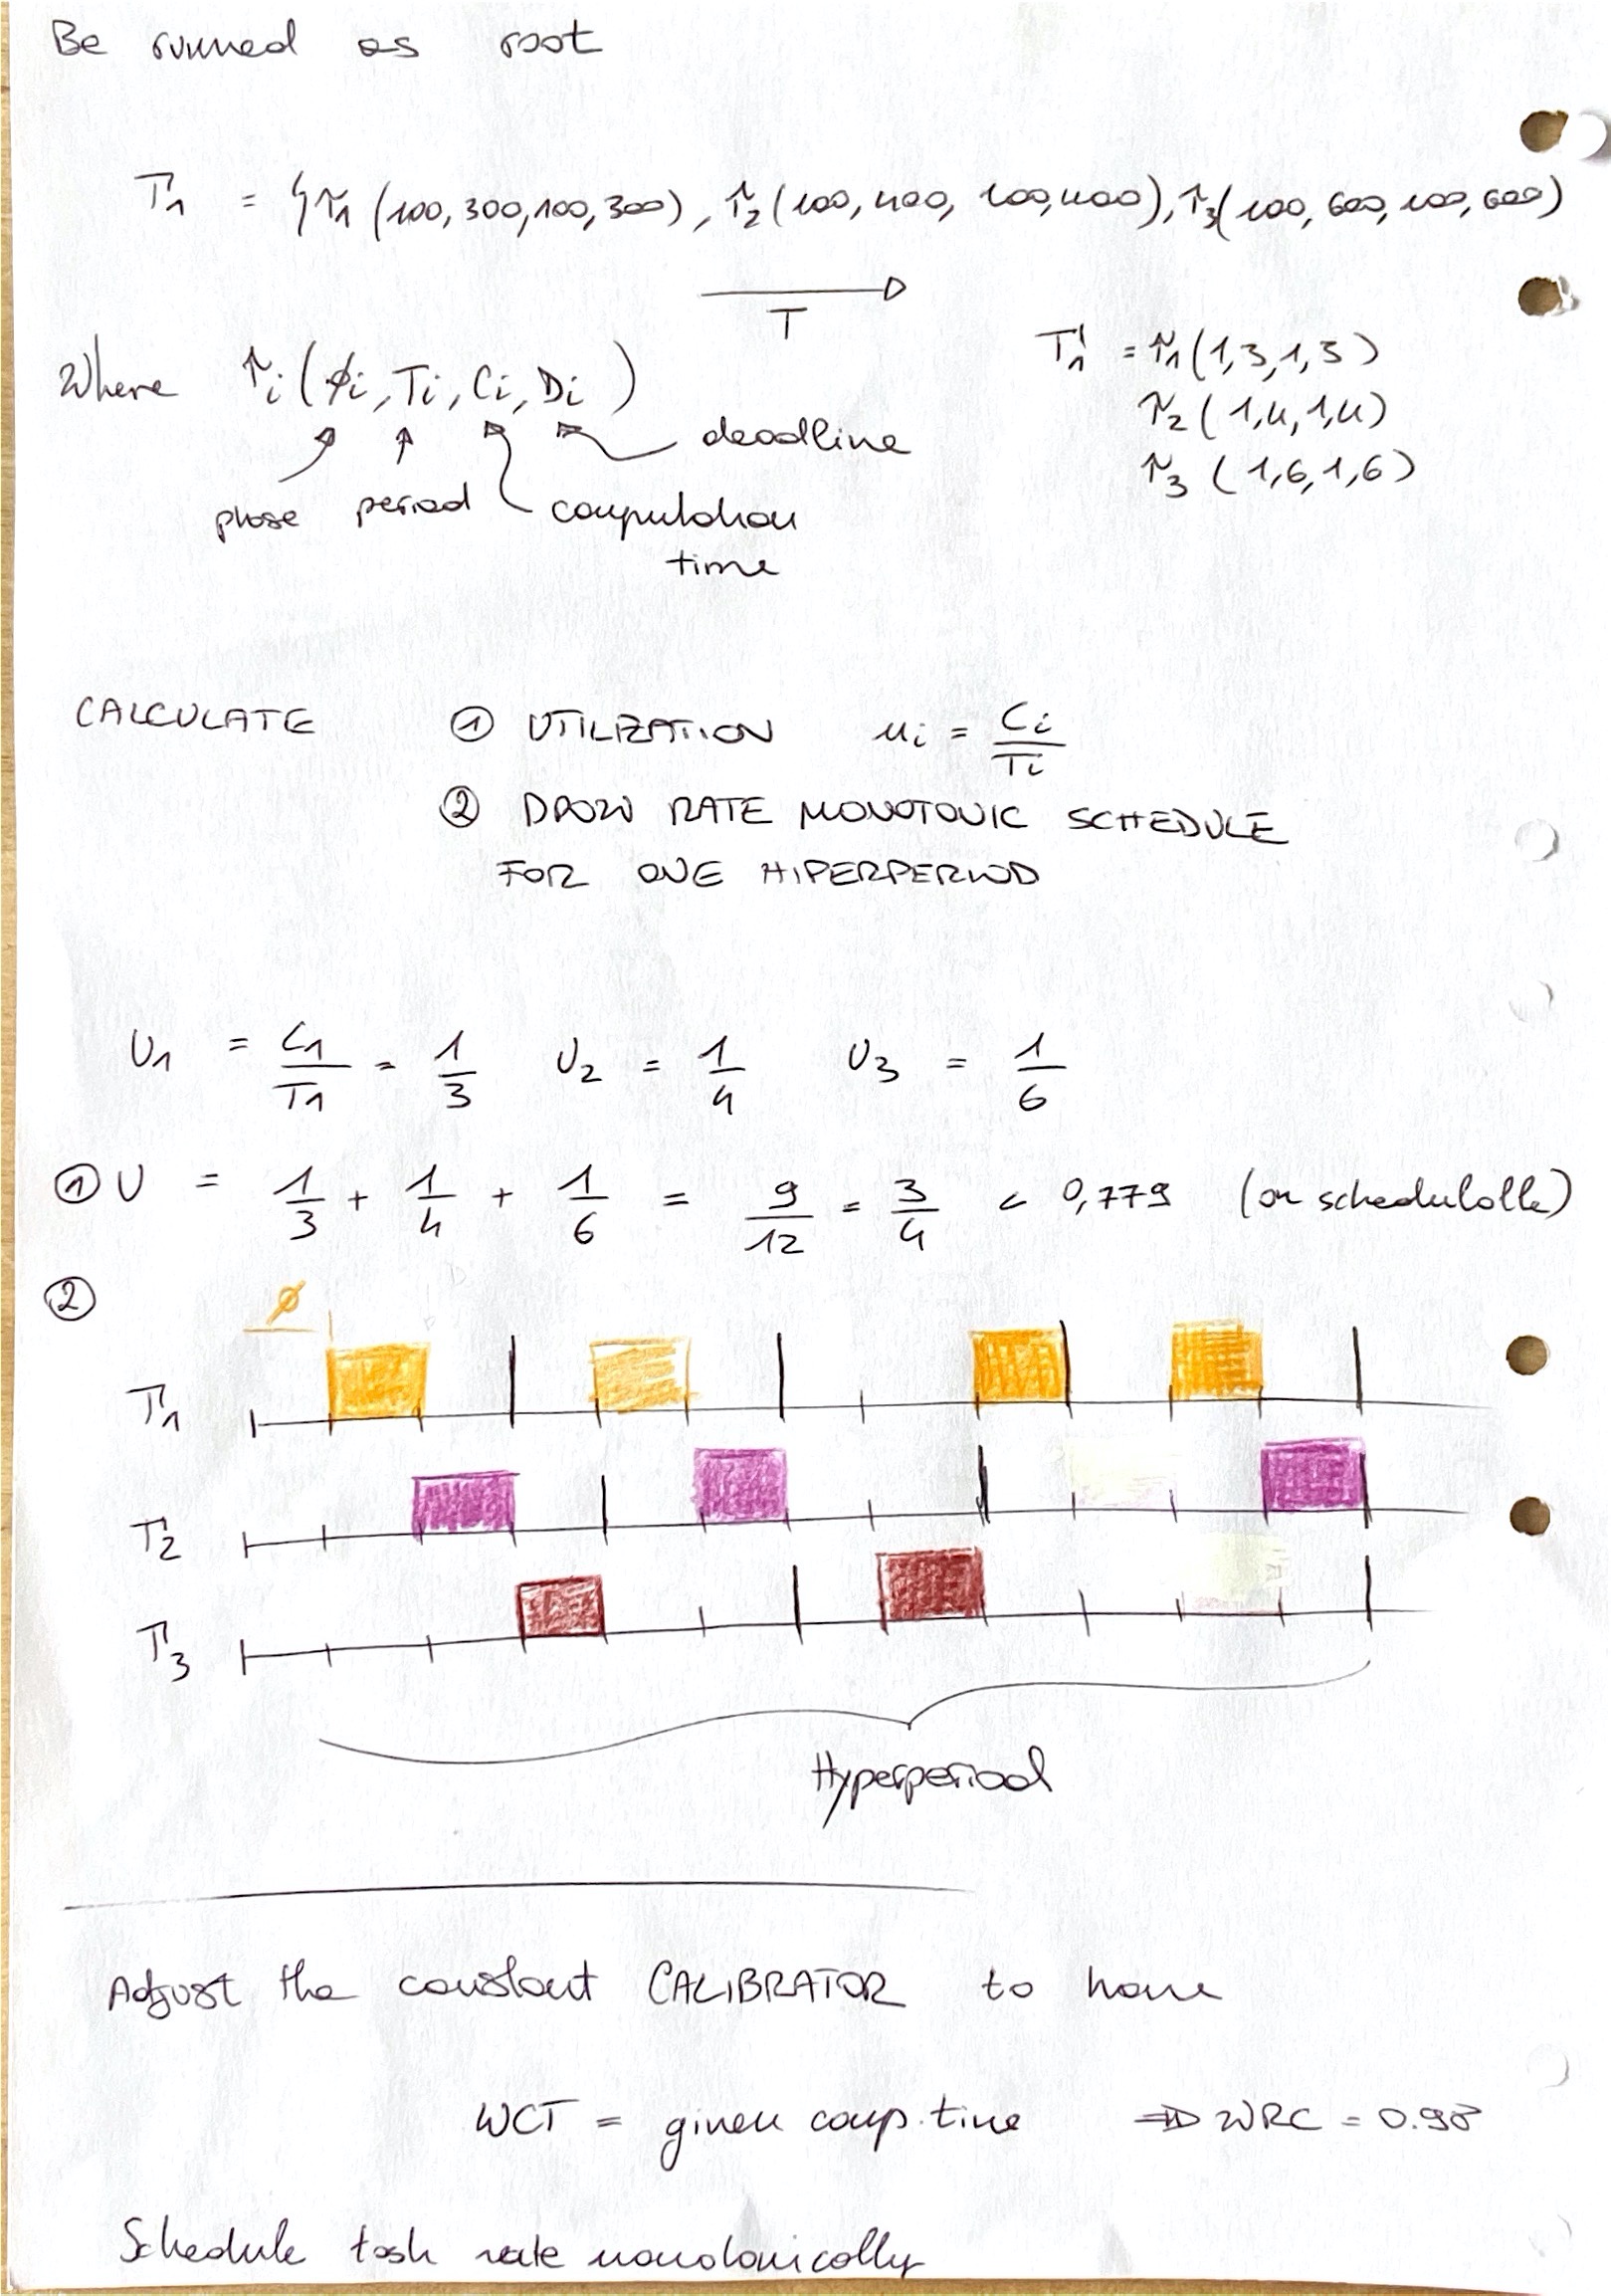 Be runned as root
T1 = { τ1 (100, 300, 100, 300), τ2 (100, 400, 100, 400), τ3 (100, 600, 100, 600)
T
Where τi ( ϕi, Ti, Ci, Di )
deadline
phase period computation
time
T1' = τ1 (1, 3, 1, 3)
τ2 ( 1, 4, 1, 4)
τ3 ( 1, 6, 1, 6 )
CALCULATE ① UTILIZATION ui = Ci/Ti
② DRAW RATE MONOTONIC SCHEDULE
FOR ONE HIPERPERIOD
U1 = C1/T1 = 1/3 U2 = 1/4 U3 = 1/6
① U = 1/3 + 1/4 + 1/6 = 9/12 = 3/4 < 0,779 (on schedulable)
②
ϕ
T1
T2
T3
Hyperperiod
Adjust the constant CALIBRATOR to have
WCT = given comp. time ⇒ WRC = 0.98
Schedule task rate monotonically